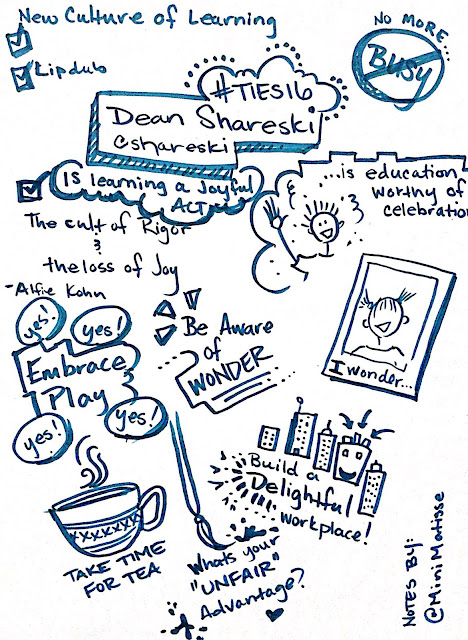 New Culture of Learning
Lipdub
NO MORE...
BUSY
#TIES16
Dean Shareski
@shareski
Is learning a Joyful
ACT
...is education
worthy of
celebration
The cult of Rigor
&
the loss of Joy
-Alfie Kohn
yes!
yes!
Embrace
Play
yes!
yes!
Be Aware
of
WONDER
I wonder...
Build a
Delightful
workplace!
TAKE TIME
FOR TEA
Whats your
"UNFAIR"
Advantage?
NOTES BY:
@MiniMatisse